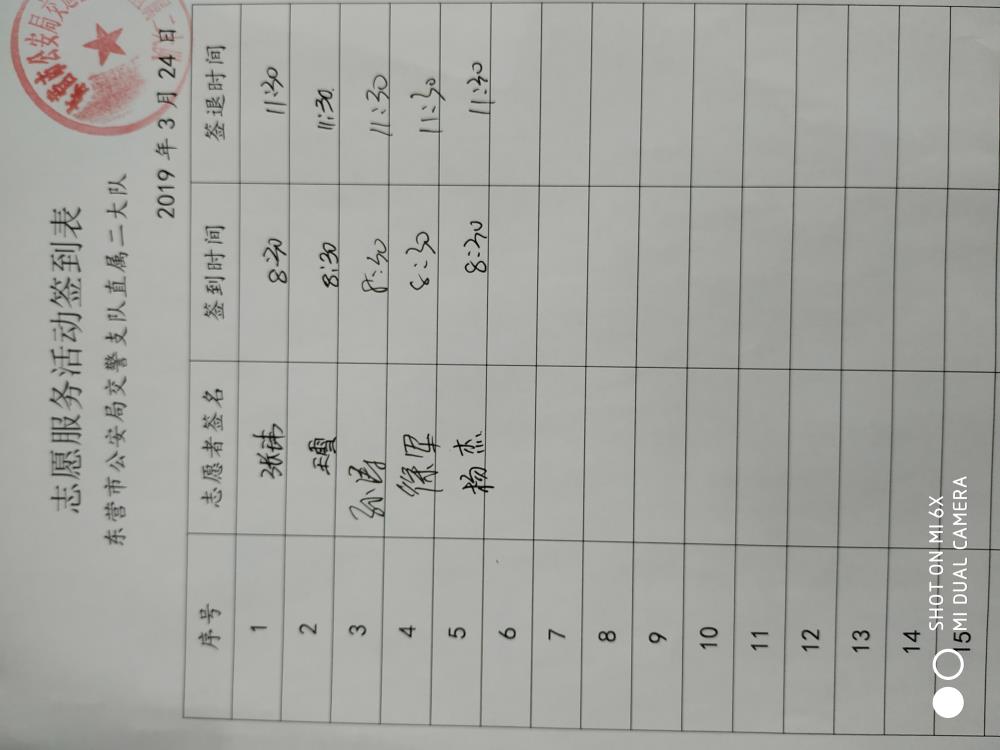 志愿服务活动签到表
东营市公安局交警支队直属二大队
2019 年 3 月 24 日
序号 志愿者签名 签到时间 签退时间
1 张玮 8:30 11:30
2 王雪 8:30 11:30
3 孙涛 8:30 11:30
4 徐军 8:30 11:30
5 杨杰 8:30 11:30
6
7
8
9
10
11
12
13
14
15
SHOT ON MI 6X
MI DUAL CAMERA